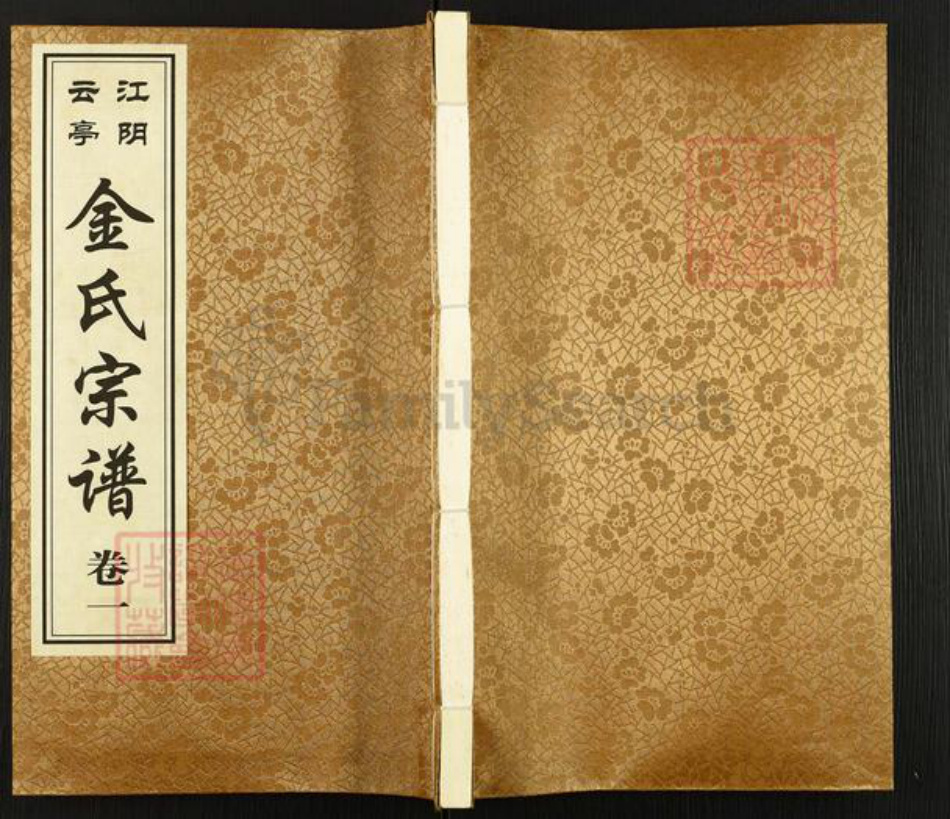 江阴
云亭
金氏宗谱
卷一
FamilySearch